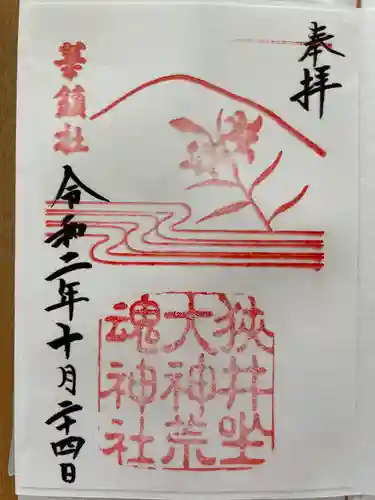 奉拝
狭井坐
大神荒
魂神社
華鎮社
令和二年十月二十四日